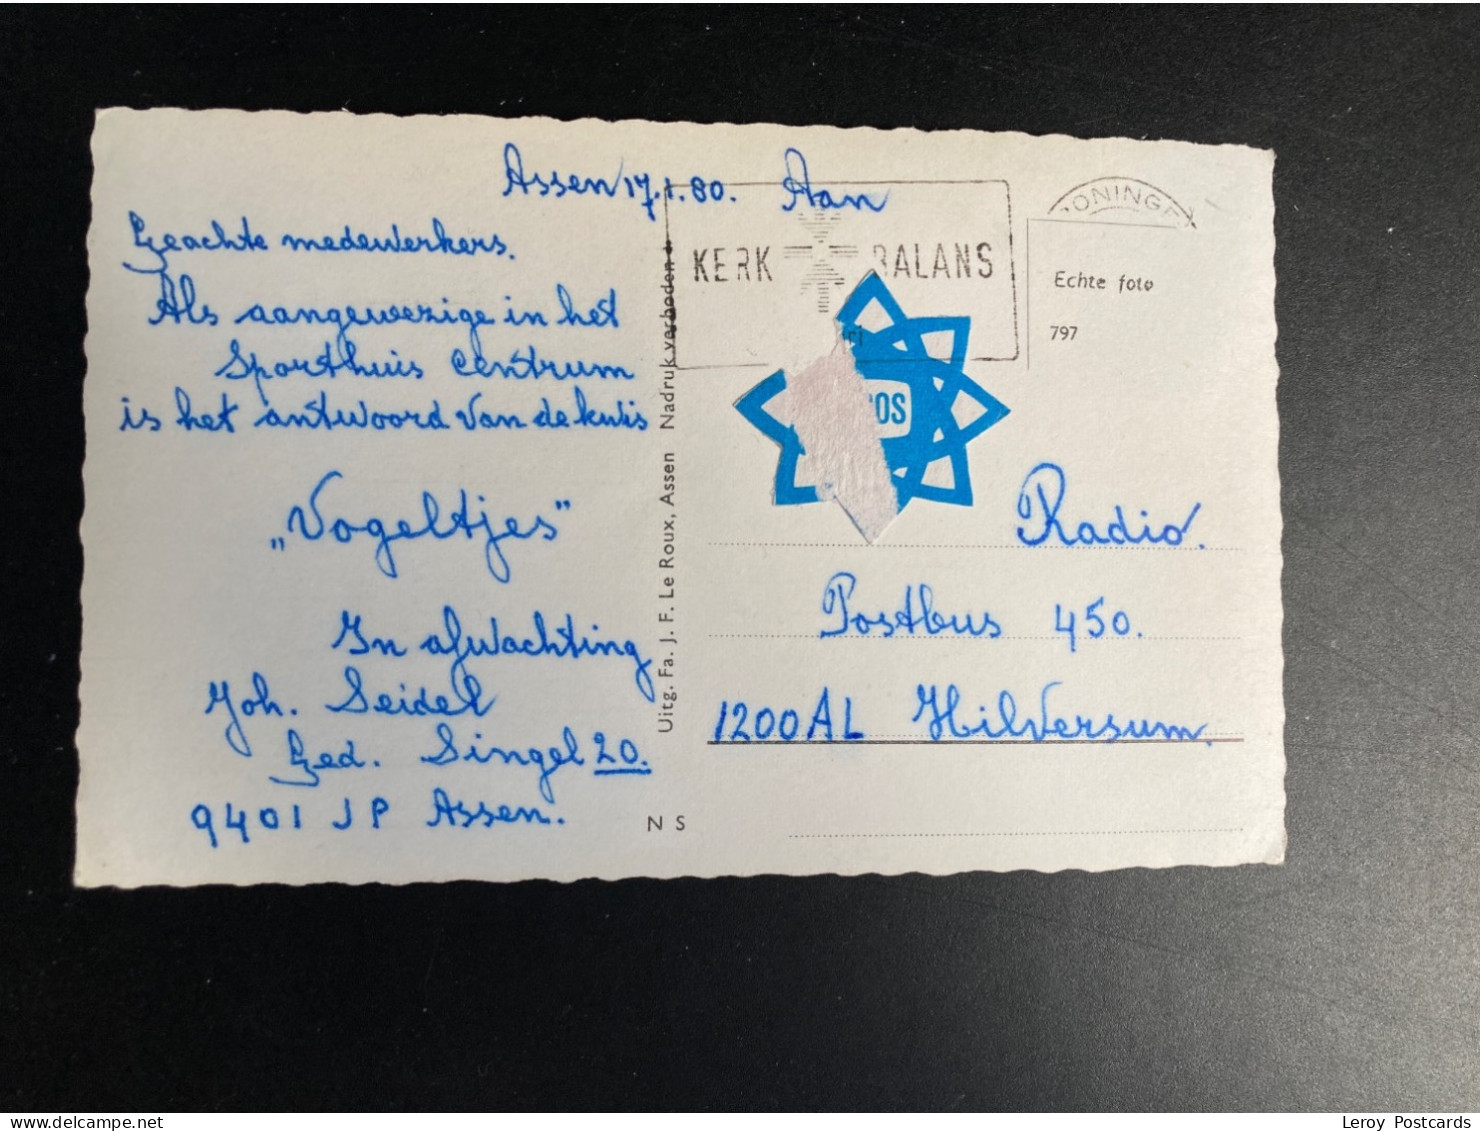 Assen 17.1.80.
Geachte medewerkers.
Als aangewezige in het
Sporthuis Centrum
is het antwoord van de kwis
„Vogeltjes"
In afwachting
Joh. Seidel
Ged. Singel 20.
9401 JP Assen.
Uitg. Fa. J. F. Le Roux, Assen Nadruk verboden
N S
Aan
KERK BALANS
Echte foto
797
OS
Radio.
Postbus 450.
1200AL Hilversum.
delcampe.net
Leroy Postcards